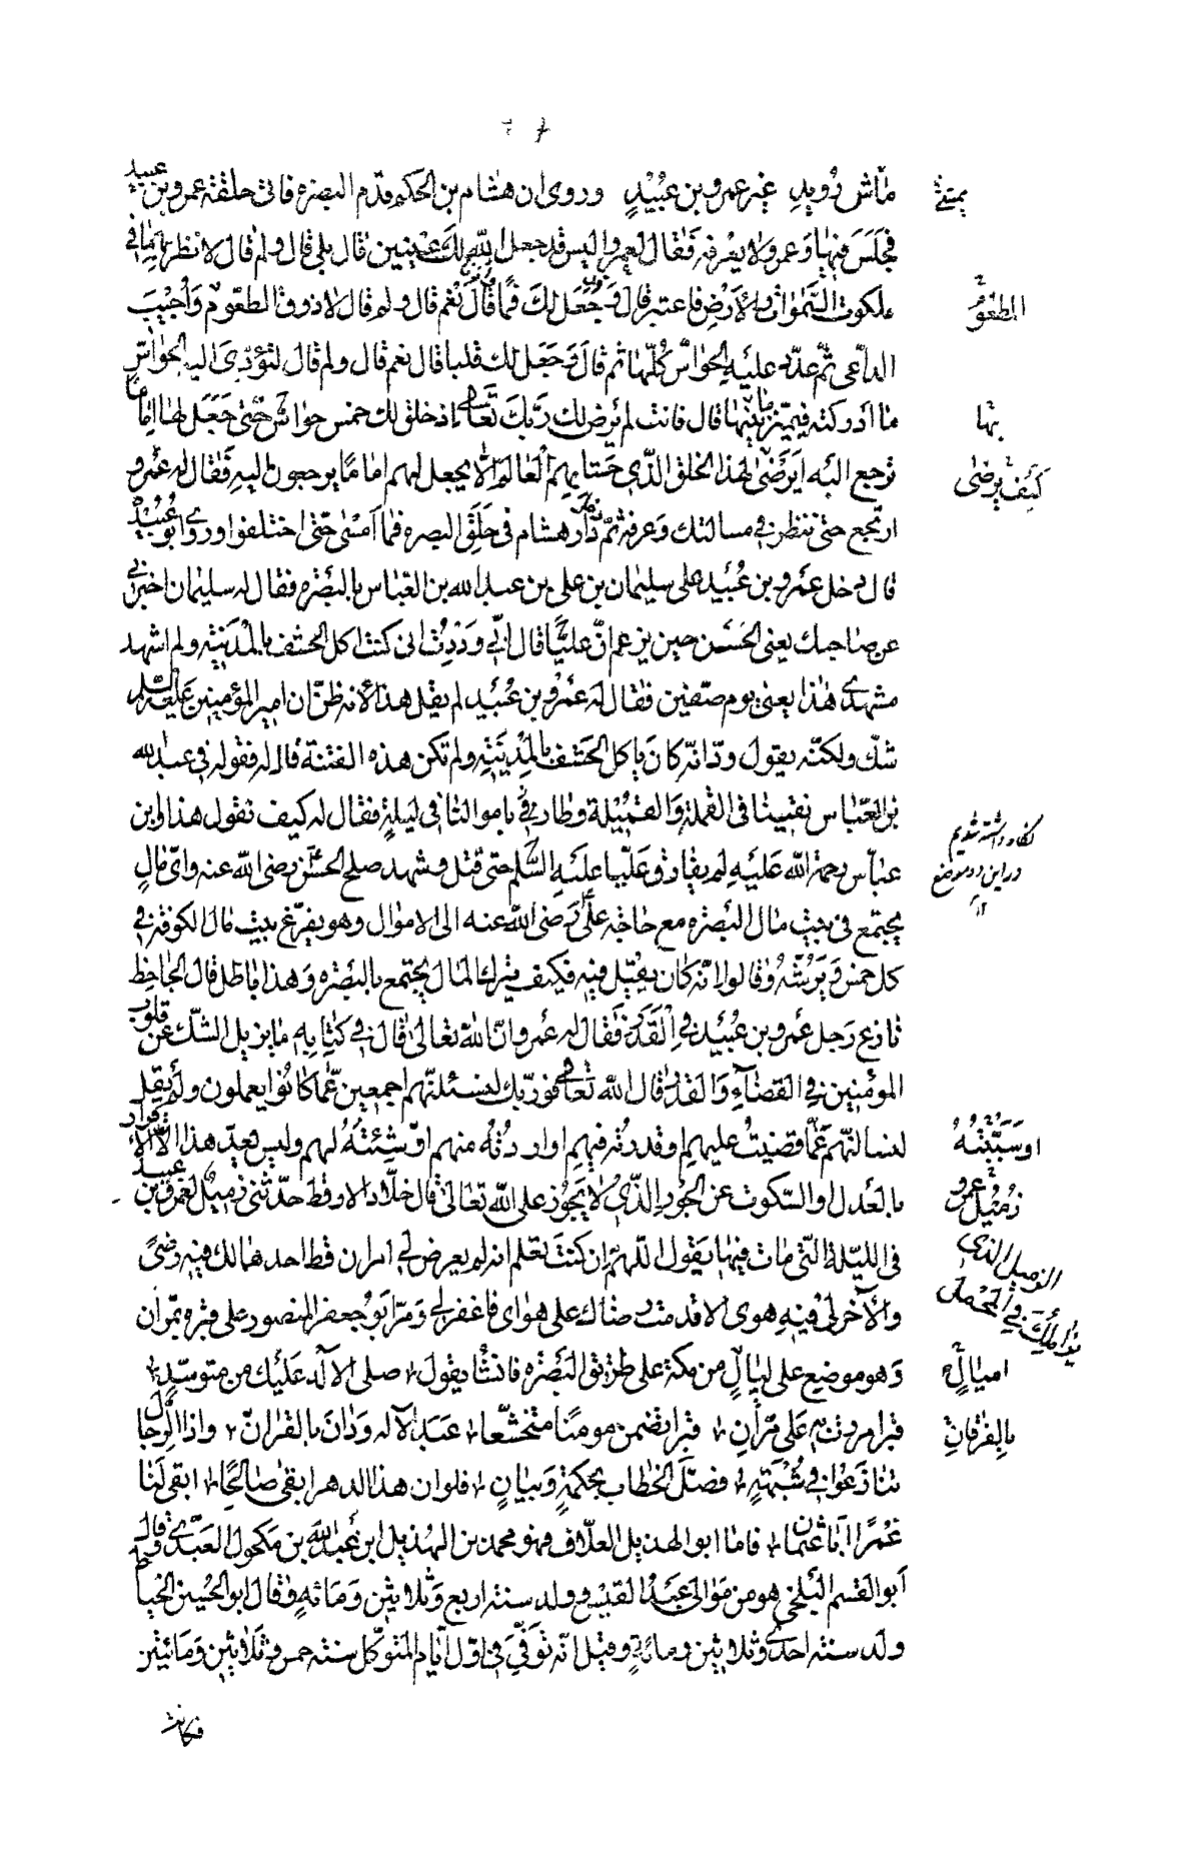 ماش رويد غير عمرو بن عبيد وروى ان هشام بن الحكم قدم البصره فاتى حلقة عمرو بن عبيد
فجلس فيها وعمرو لا يعرفه فقال لعمرو اليس قد جعل الله لك عينين قال بلى قال ولم قال لانظر بهما في
ملكوت السموات والارض فاعتبر قال وجعل لك فما قال نعم قال ولم قال لاذوق الطعوم واجيب
الداعى ثم عدد عليه الحواس كلها ثم قال وجعل لك قلبا قال نعم قال ولم قال لتؤدى اليه الحواس
ما ادركته فيميز بينها قال فانت لم يرض لك ربك تعالى اذ خلق لك خمس حواس حتى جعل لها اماما
ترجع اليه ايرضى لهذا الخلق الذي حشا بهم العالم الا يجعل لهم اماما يرجعون اليه فقال له عمرو
ارتجع حتى ننظر في مسالتك وعرفه ثم دار هشام في حلق البصره فما امسى حتى اختلفوا وروى ابو عبيد
قال دخل عمرو بن عبيد على سليمان بن على بن عبد الله بن العباس بالبصره فقال له سليمان اخبرني
عن صاحبك يعنى الحسن حين يزعم ان عليا قال اني وددت انى كنت اكل الحشف بالمدينة ولم اشهد
مشهدى هذا يعنى يوم صفين فقال له عمرو بن عبيد لم يقل هذا لانه ظن ان امير المؤمنين عليه السلم
شك ولكنه يقول ود انه كان ياكل الحشف بالمدينة ولم تكن هذه الفتنة قال له فقوله في عبد الله
بن العباس نفيتنا فى القملة والقميلة وطار باموالنا في ليلة فقال له كيف تقول هذا وابن
عباس رحمة الله عليه لم يفارق عليا عليه السلم حتى قتل وشهد صلح الحسن رضى الله عنه واى مال
يجتمع فى بيت مال البصره مع حاجة على رضى الله عنه الى الاموال وهو يفرغ بيت مال الكوفة في
كل خمس ويرشه وقالوا انه كان يقيل فيه فكيف يترك المال يجتمع بالبصره وهذا باطل قال الجاحظ
نازع رجل عمرو بن عبيد في القدر فقال له عمرو ان الله تعالى قال في كتابه ما يزيل الشك عن قلوب
المؤمنين في القضاء والقدر قال الله تعالى فوربك لنسئلنهم اجمعين عما كانوا يعملون ولم يقل
لنسالنهم عما قضيت عليهم او قدرته فيهم او اردته منهم او شئته لهم وليس بعد هذا الا الاقرار
بالعدل او السكوت عن الجور الذي لا يجوز على الله تعالى قال خلاد الارقط حدثنى زميل لعمرو بن عبيد
فى الليلة التى مات فيها يقول اللهم ان كنت تعلم انه لم يعرض لي امران قط احدهما لك فيه رضى
والآخر لى فيه هوى الا قدمت رضاك على هواى فاغفر لى ومر ابو جعفر المنصور على قبره بمران
وهو موضع على ليال من مكة على طريق البصره فانشا يقول صلى الاله عليك من متوسد
قبرا مررت به على مران قبرا تضمن مومنا متخشعا عبد الاله ودان بالقران واذا الرجال
تنازعوا في شبهة فصل الخطاب بحكمة وبيان فلو ان هذا الدهر ابقى صالحا ابقى لنا
عمرا ابا عثمان فاما ابو الهذيل العلاف فهو محمد بن الهذيل ابن عبد الله بن مكحول العبدى وقال
ابو القسم البلخى هو من موالى عبد القيس وولد سنة اربع وثلاثين ومائة وقال ابو الحسين الخياط
ولد سنة احدى وثلاثين ومائة وقيل انه توفي في اول ايام المتوكل سنة خمس وثلاثين ومائتين
فكانت
الطعوم
بها
كيف يرضى
او سببته
زميل عمرو
اميال
بالفرقان